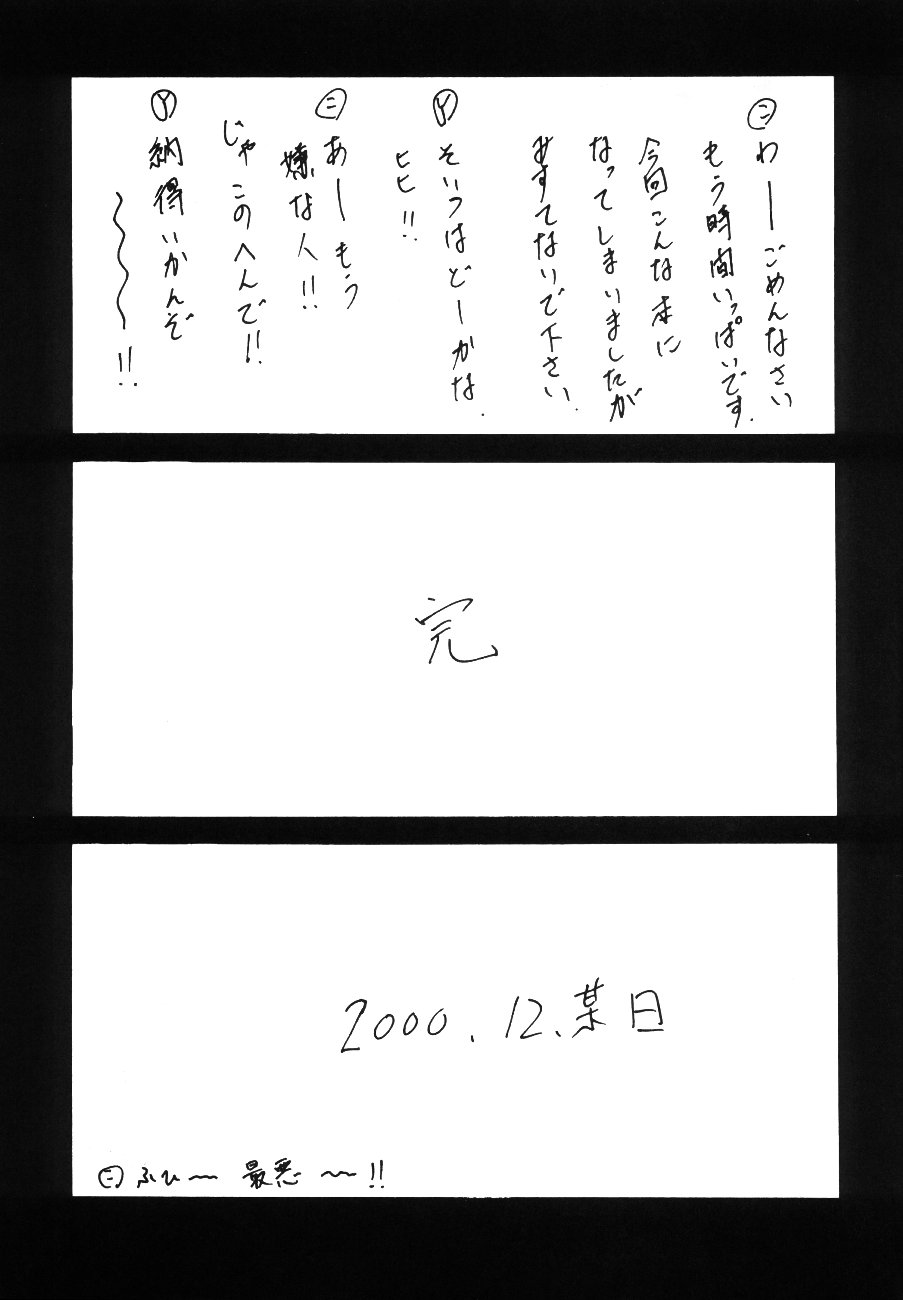 ㊁わーごめんなさい
もう時間いっぱいです.
今回こんな本に
なってしまいましたが
みすてないで下さい.
Ⓨそいつはどーかな.
ヒヒ!!
㊁あーもう
嫌な人!!
じゃこのへんで!!
Ⓨ納得いかんぞ
〜〜〜〜!!
完
2000.12.某日
㊁ふひ〜 最悪〜!!